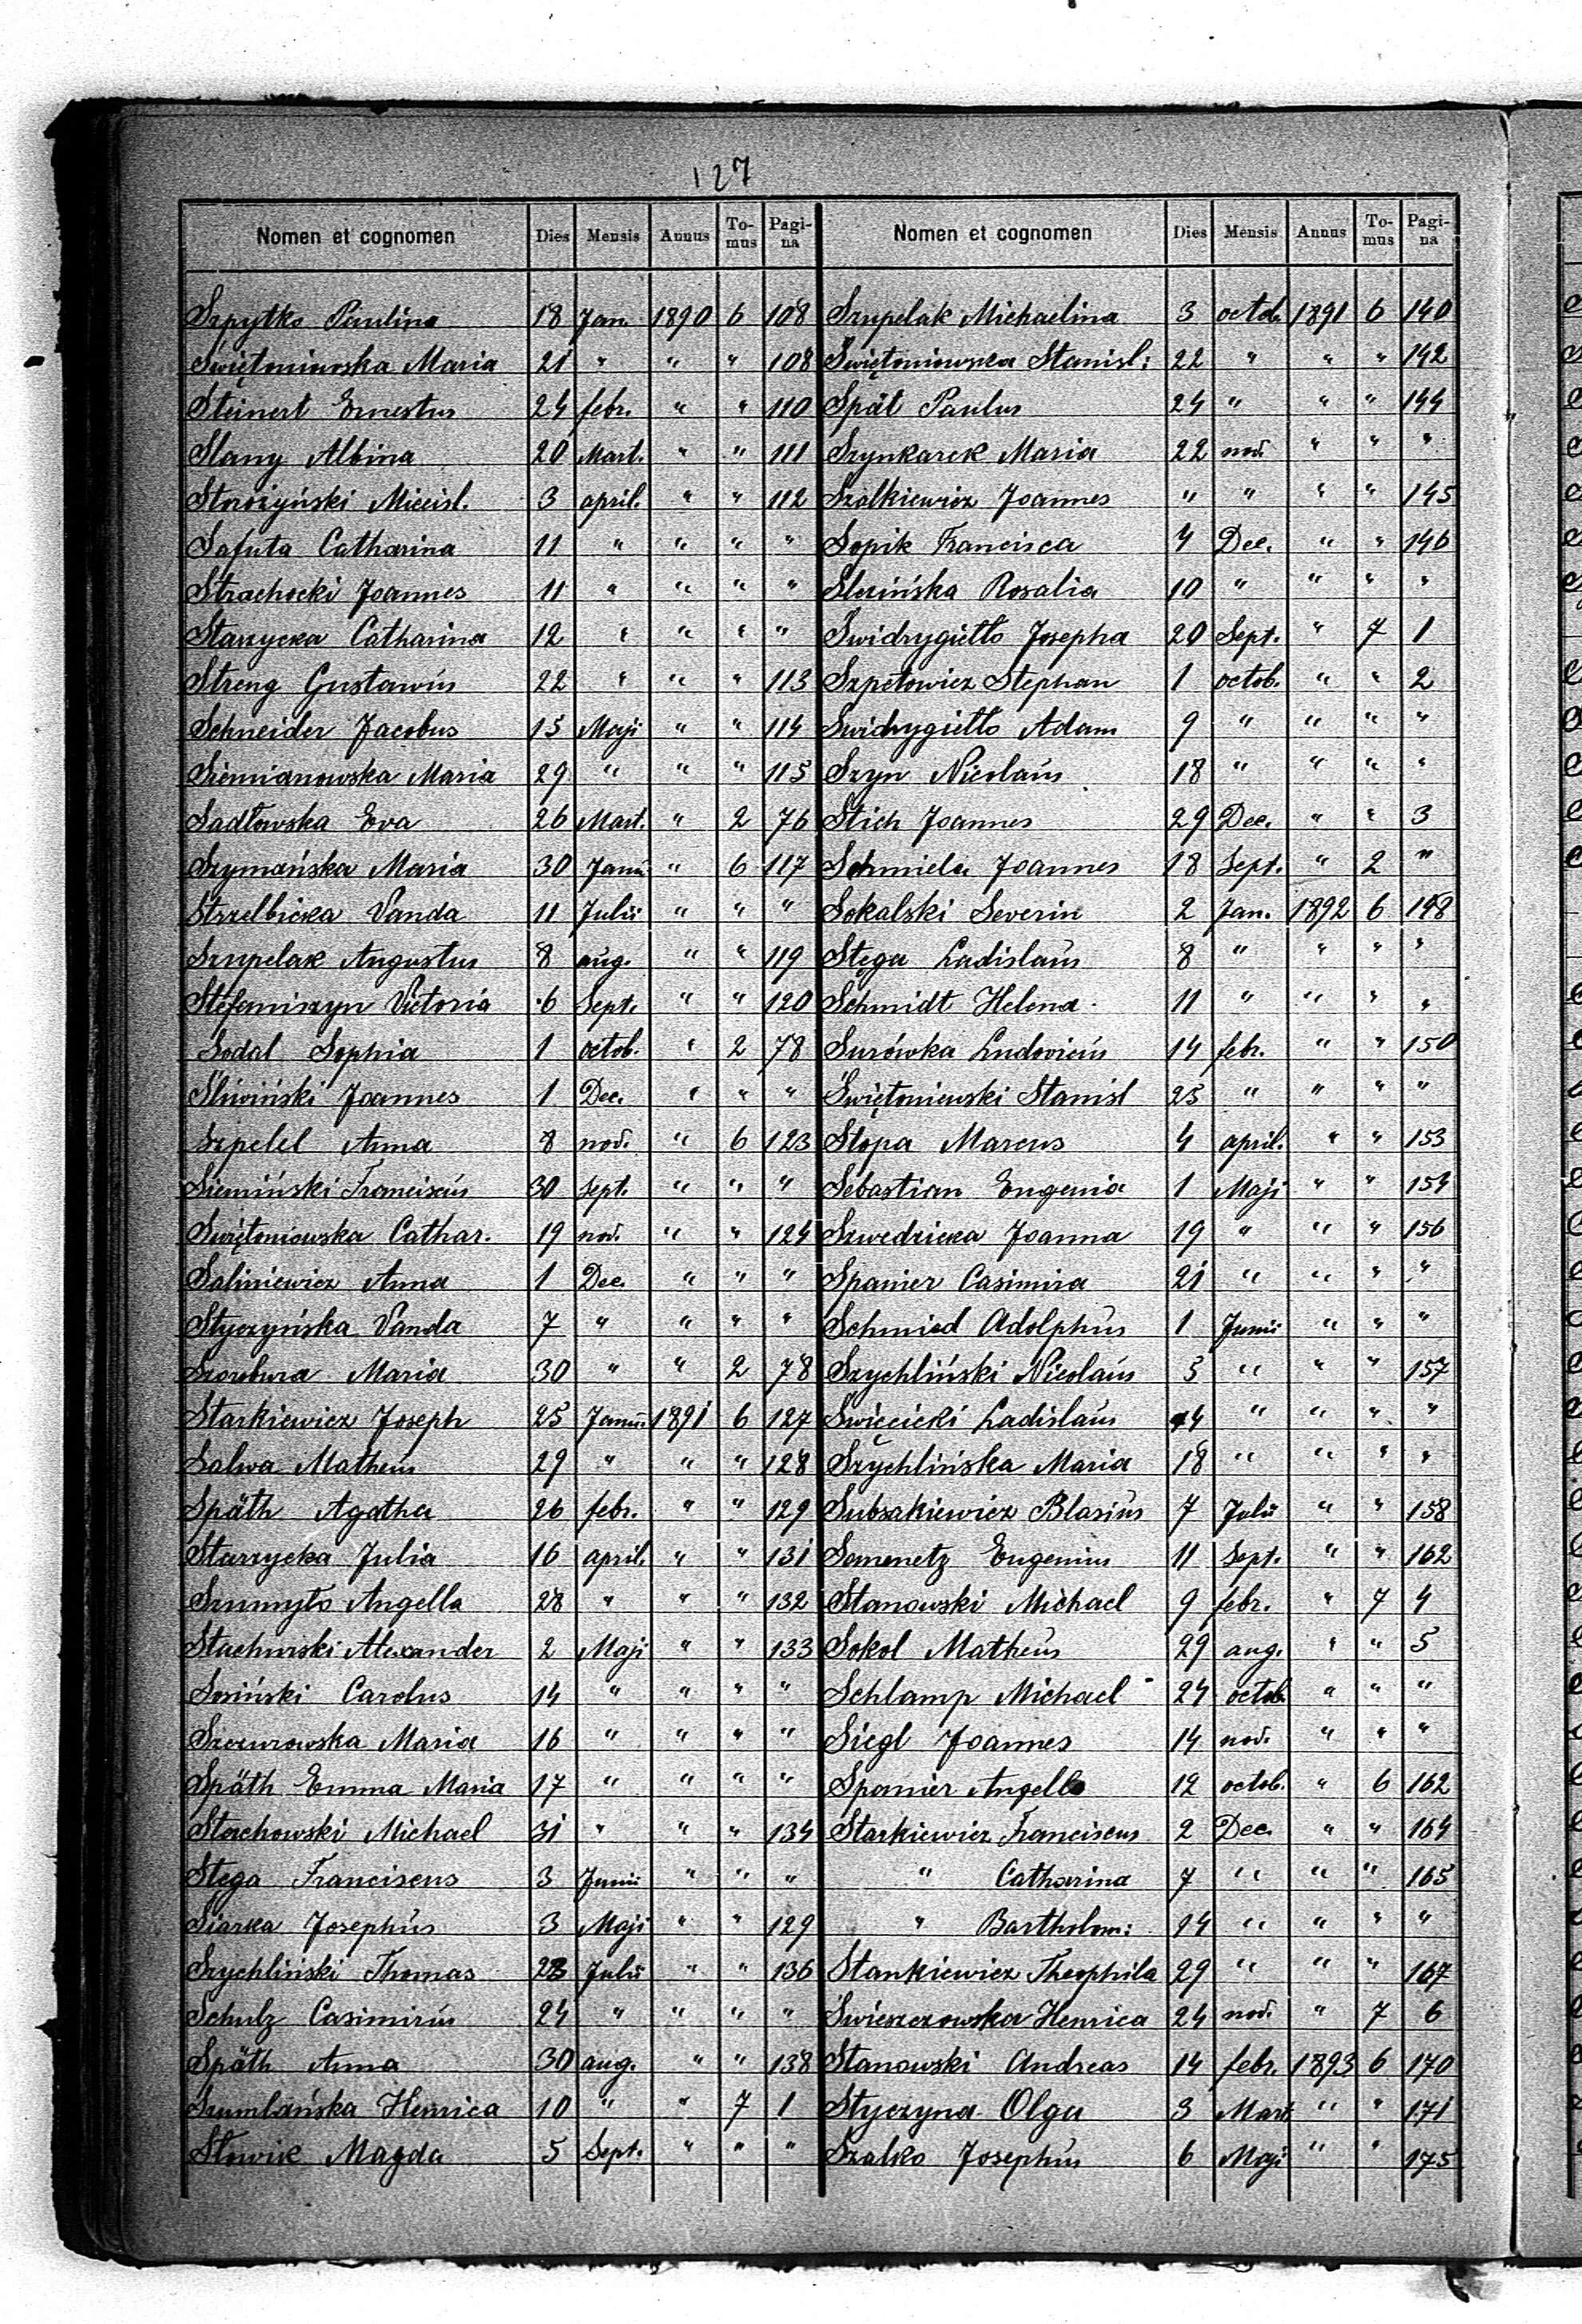 127
Nomen et cognomen Dies Mensis Annus To-mus Pagi-na
Szpytko Paulina 18 Jan. 1890 6 108
Swiętoniowska Maria 21 " " " 108
Steinert Ernestus 24 febr. " " 110
Slany Albina 20 Mart. " " 111
Storożyński Miecisl. 3 april. " " 112
Safuta Catharina 11 " " " "
Strachocki Joannes 11 " " " "
Starzycka Catharina 12 " " " "
Streng Gustawus 22 " " " 113
Schneider Jacobus 15 Maji " " 114
Siemianowska Maria 29 " " " 115
Sadłowska Eva 26 Mart. " 2 76
Szymańska Maria 30 " 6 117
Strzelbicka Vanda 11 Julii " " "
Szupelak Augustus 8 aug. " " 119
Stefaniszyn Victoria 6 Sept. " " 120
Sodal Sophia 1 octob. " 2 78
Śliwiński Joannes 1 Dec. " " "
Szpelel Anna 8 nov. " 6 123
Siemiński Franciscus 30 sept. " " "
Swiętoniowska Cathar. 19 nov. " " 124
Saliniewicz Anna 1 Dec. " " "
Styczyńska Vanda 7 " " " "
Maria 30 " " 2 78
Starkiewicz Joseph 25 1891 6 127
Salwa Matheus 29 " " " 128
Späth Agatha 26 febr. " " 129
Starzycka Julia 16 april. " " 131
Szumyło Angella 28 " " " 132
Stachurski Alexander 2 Maji " " 133
Sosiński Carolus 14 " " " "
Szczurowska Maria 16 " " " "
Späth Emma Maria 17 " " " "
Stachowski Michael 31 " " " 134
Stega Franciscus 3 Junii " " "
Siarka Josephus 3 Maji " " 129
Szychliński Thomas 23 Julii " " 136
Schulz Casimirus 24 " " " "
Späth Anna 30 aug. " " 138
Szumlańska Henrica 10 " " 7 1
Słowik Magda 5 Sept. " " "
Nomen et cognomen Dies Mensis Annus To-mus Pagi-na
Szupelak Michaelina 3 octob. 1891 6 140
Swiętoniowska Stanisl: 22 " " " 142
Spät Paulus 24 " " " 144
Szynkarek Maria 22 nov. " " "
Szalkiewicz Joannes " " " " 145
Sopik Francisca 4 Dec. " " 146
Slezińska Rosalia 10 " " " "
Swidrygiełło Josepha 20 Sept. " 7 1
Szpetowicz Stephan 1 octob. " " 2
Swidrygiełło Adam 9 " " " "
Szyn Nicolaus 18 " " " "
Stich Joannes 29 Dec. " " 3
Schmiela Joannes 18 Sept. " 2 "
Sokalski Severin 2 Jan. 1892 6 148
Stęga Ladislaus 8 " " " "
Schmidt Helena 11 " " " "
Surówka Ludovicus 14 febr. " " 150
Świętoniewski Stanisl 25 " " " "
Stopa Marcus 4 april. " " 153
Sebastian Eugenia 1 Maji " " 154
Szwedzicka Joanna 19 " " " 156
Spanier Casimira 21 " " " "
Schmied Adolphus 1 Junii " " "
Szychliński Nicolaus 5 " " " 157
Swięcicki Ladislaus 14 " " " "
Szychlińska Maria 18 " " " "
Subsakiewicz Blasius 7 Julii " " 158
Semenetz Eugenius 11 Sept. " " 162
Stanowski Michael 9 febr. " 7 4
Sokol Matheus 29 aug. " " 5
Schlamp Michael 24 octob " " "
Siegl Joannes 14 nov. " " "
Spanier Angella 12 octob. " 6 162
Starkiewicz Franciscus 2 Dec. " " 164
" Catharina 7 " " " 165
" Bartholom: 14 " " " "
Stankiewicz Theophila 29 " " " 167
Świeszczowska Henrica 24 nov. " 7 6
Stanowski Andreas 14 febr. 1893 6 170
Styczyna Olga 3 Mart " " 171
Szalko Josephus 6 Maji " " 175